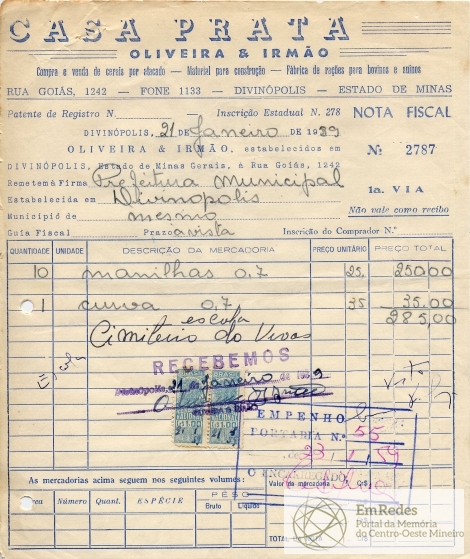 CASA PRATA
OLIVEIRA & IRMÃO
Compra e venda de cereis por atacado — Material para construção — Fábrica de rações para bovinos e suinos
RUA GOIÁS, 1242 — FONE 1133 — DIVINÓPOLIS — ESTADO DE MINAS
Patente de Registro N. Inscrição Estadual N. 278 NOTA FISCAL
DIVINÓPOLIS, 21 DE Janeiro DE 1959
OLIVEIRA & IRMÃO, estabelecidos em
DIVINÓPOLIS, Estado de Minas Gerais, à Rua Goiás, 1242 Nº 2787
Remetem à Firma Prefeitura Municipal 1a. VIA
Estabelecida em Divinopolis
Municipio de mesmo Não vale como recibo
Guia Fiscal Prazo avista Inscrição do Comprador N.º
QUANTIDADE UNIDADE DESCRIÇÃO DA MERCADORIA PREÇO UNITÁRIO PREÇO TOTAL
10 manilhas 0,7 25, 250,00
1 curva 0,7 35 35.00
escola 285,00
Cimiteiro do
RECEBEMOS
Divinópolis, 21 de Janeiro de 1959
OLIVEIRA & IRMÃO
EMPENHO
PORTARIA N.º 55
23 / 1 / 59
O ENCARREGADO
As mercadorias acima seguem nos seguintes volumes: Valor da mercadoria Cr$
Marca Número Quant. ESPÉCIE PÊSO
Bruto Liquido
EmRedes
Portal da Memória
do Centro-Oeste Mineiro